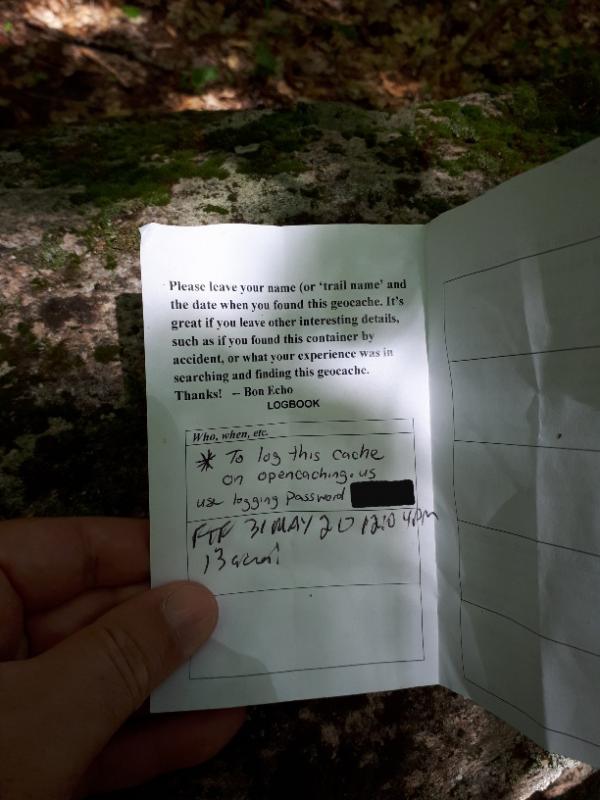 Please leave your name (or 'trail name' and
the date when you found this geocache. It's
great if you leave other interesting details,
such as if you found this container by
accident, or what your experience was in
searching and finding this geocache.
Thanks! -- Bon Echo
LOGBOOK
Who, when, etc.
* To log this cache
on opencaching.us
use logging password
FTF 31 MAY 20 12:04pm